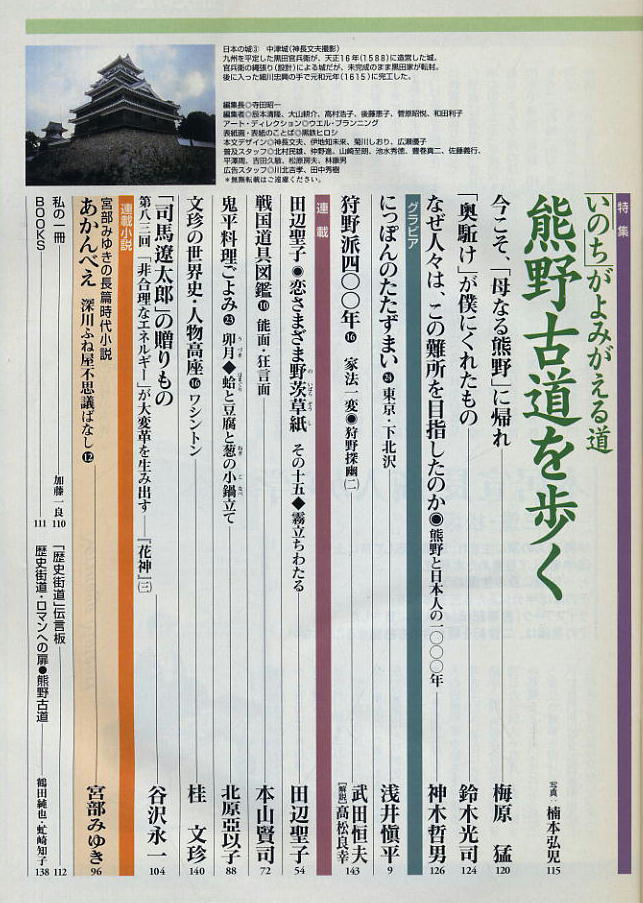 日本の城③ 中津城(神長文夫撮影)
九州を平定した黒田官兵衛が、天正16年(1588)に造営した城。
官兵衛の縄張り(設計)による城だが、未完成のまま黒田家が転封。
後に入った細川忠興の手で元和元年(1615)に完工した。
編集長◎寺田昭一
編集者◎辰本清隆、大山耕介、高村浩子、後藤恵子、菅原昭悦、和田利子
アート・ディレクション◎ウエル・プランニング
表紙画・表紙のことば◎黒鉄ヒロシ
本文デザイン◎神長文夫、伊地知未来、菊川しおり、広瀬優子
普及スタッフ◎北村民雄、仲野進、山崎至朗、池水秀徳、豊巻真二、佐藤義行、
平澤周、吉田久敏、松原房夫、林康男
広告スタッフ◎川北吉孝、田中秀樹
*無断転載はご遠慮ください。
特集
「いのち」がよみがえる道
熊野古道を歩く
写真・楠本弘児 115
今こそ、「母なる熊野」に帰れ 梅原 猛 120
「奥駈け」が僕にくれたもの 鈴木光司 124
なぜ人々は、この難所を目指したのか◉熊野と日本人の一〇〇〇年 神木哲男 126
グラビア
にっぽんのたたずまい㉔ 東京・下北沢 浅井愼平 9
狩野派四〇〇年⑯ 家法一変◉狩野探幽(二) 武田恒夫 [解説]高松良幸 143
連載
田辺聖子◉恋さまざま野茨草紙 その十五◆霧立ちわたる 田辺聖子 54
のいばらぞうし
戦国道具図鑑⑩ 能面・狂言面 本山賢司 72
鬼平料理ごよみ㉓ 卯月◆蛤と豆腐と葱の小鍋立て 北原亞以子 88
うづき はまぐり ねぎ こなべ
文珍の世界史・人物高座⑯ ワシントン 桂 文珍 140
「司馬遼太郎」の贈りもの
第八三回 「非合理なエネルギー」が大変革を生み出す――『花神』(三) 谷沢永一 104
連載小説
宮部みゆきの長篇時代小説
あかんべえ 深川ふね屋不思議ばなし⑫ 宮部みゆき 96
私の一冊 加藤一良 110
BOOKS 111
「歴史街道」伝言板 112
歴史街道・ロマンへの扉●熊野古道 鶴田純也・虻崎知子 138